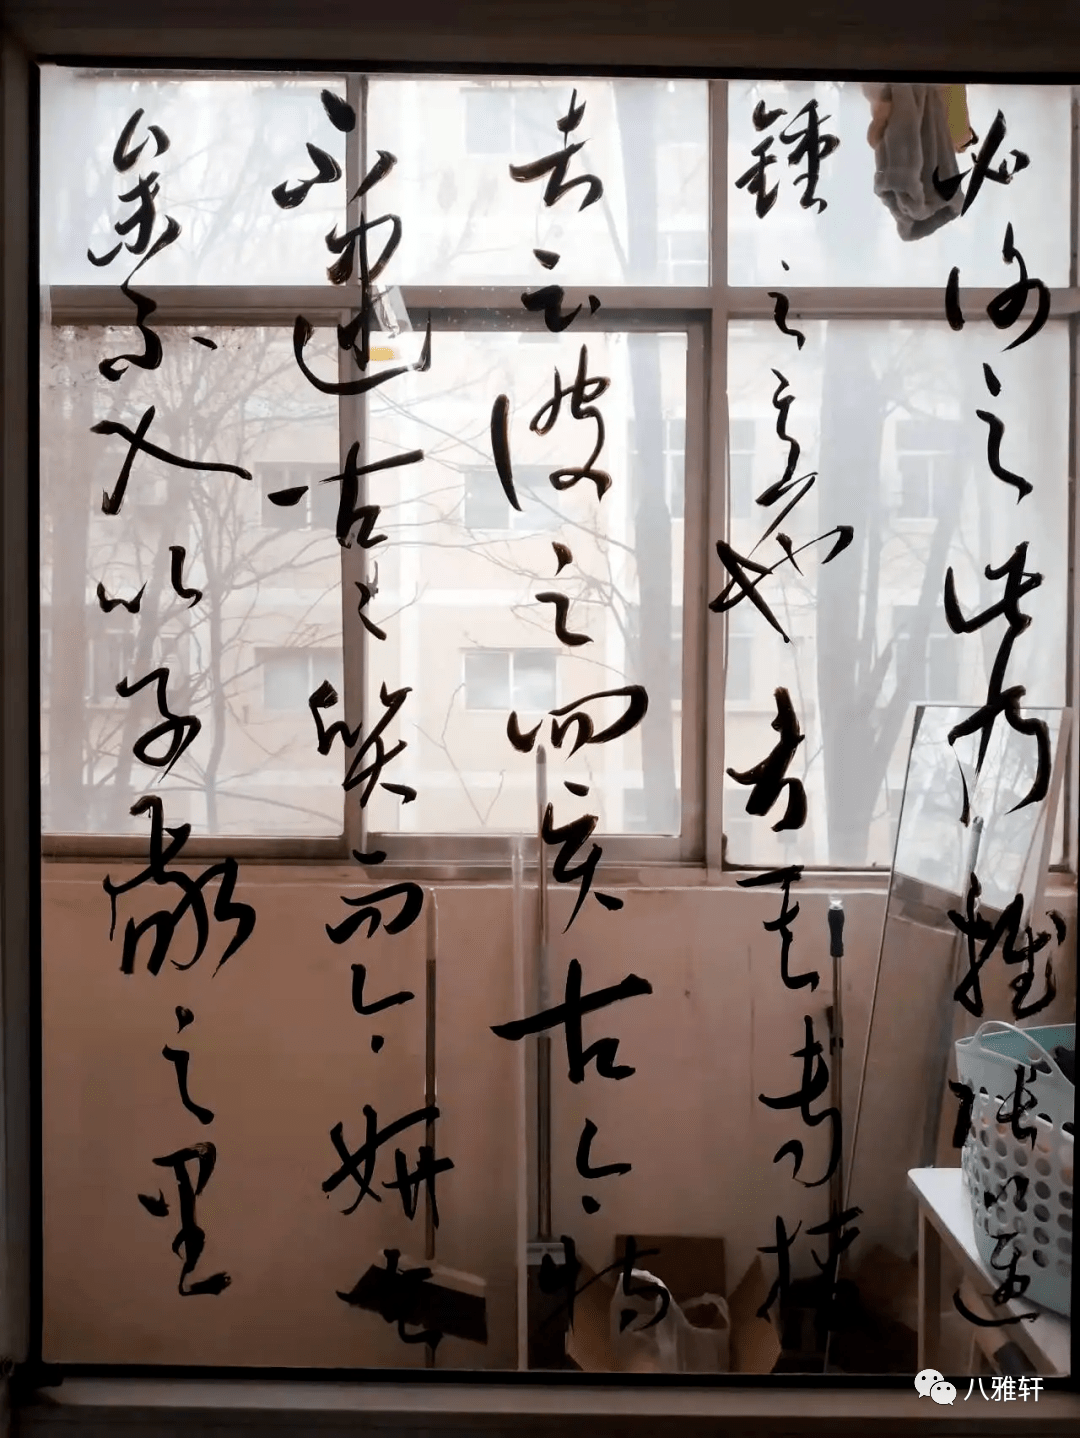 必謝之此乃推張邁
鍾之意也考其專擅
者云彼之四賢古今特
不逮古〻質而今妍
以子敬之
八雅轩